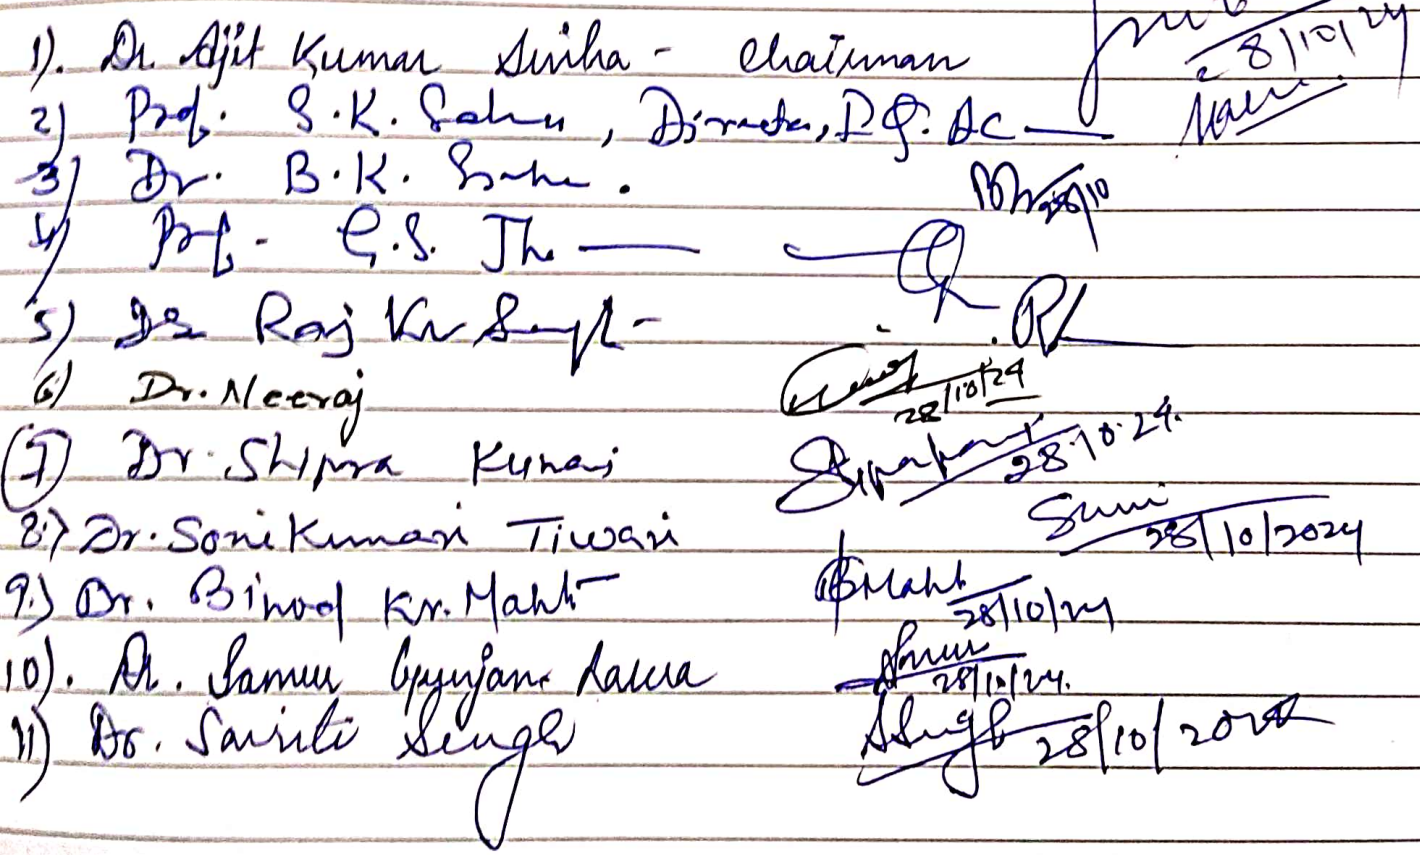 28/10/24
1). Dr. Ajit Kumar Sinha - Chairman
2) Prof. S.K. Sahu, Director,
3) Dr. B.K. Sinha. 28/10
4) Prof. G.S. Jha
5) Dr Raj Kr Singh -
6) Dr. Neeraj 28/10/24
7) Dr. Shipra Kumari 28.10.24.
8.) Dr. Soni Kumari Tiwari Suni 28/10/2024
9.) Dr. Binod Kr. Mahto BMahto 28/10/24
10). Dr. 28/10/24.
11) Dr. Sariti Singh ASingh 28/10/2024